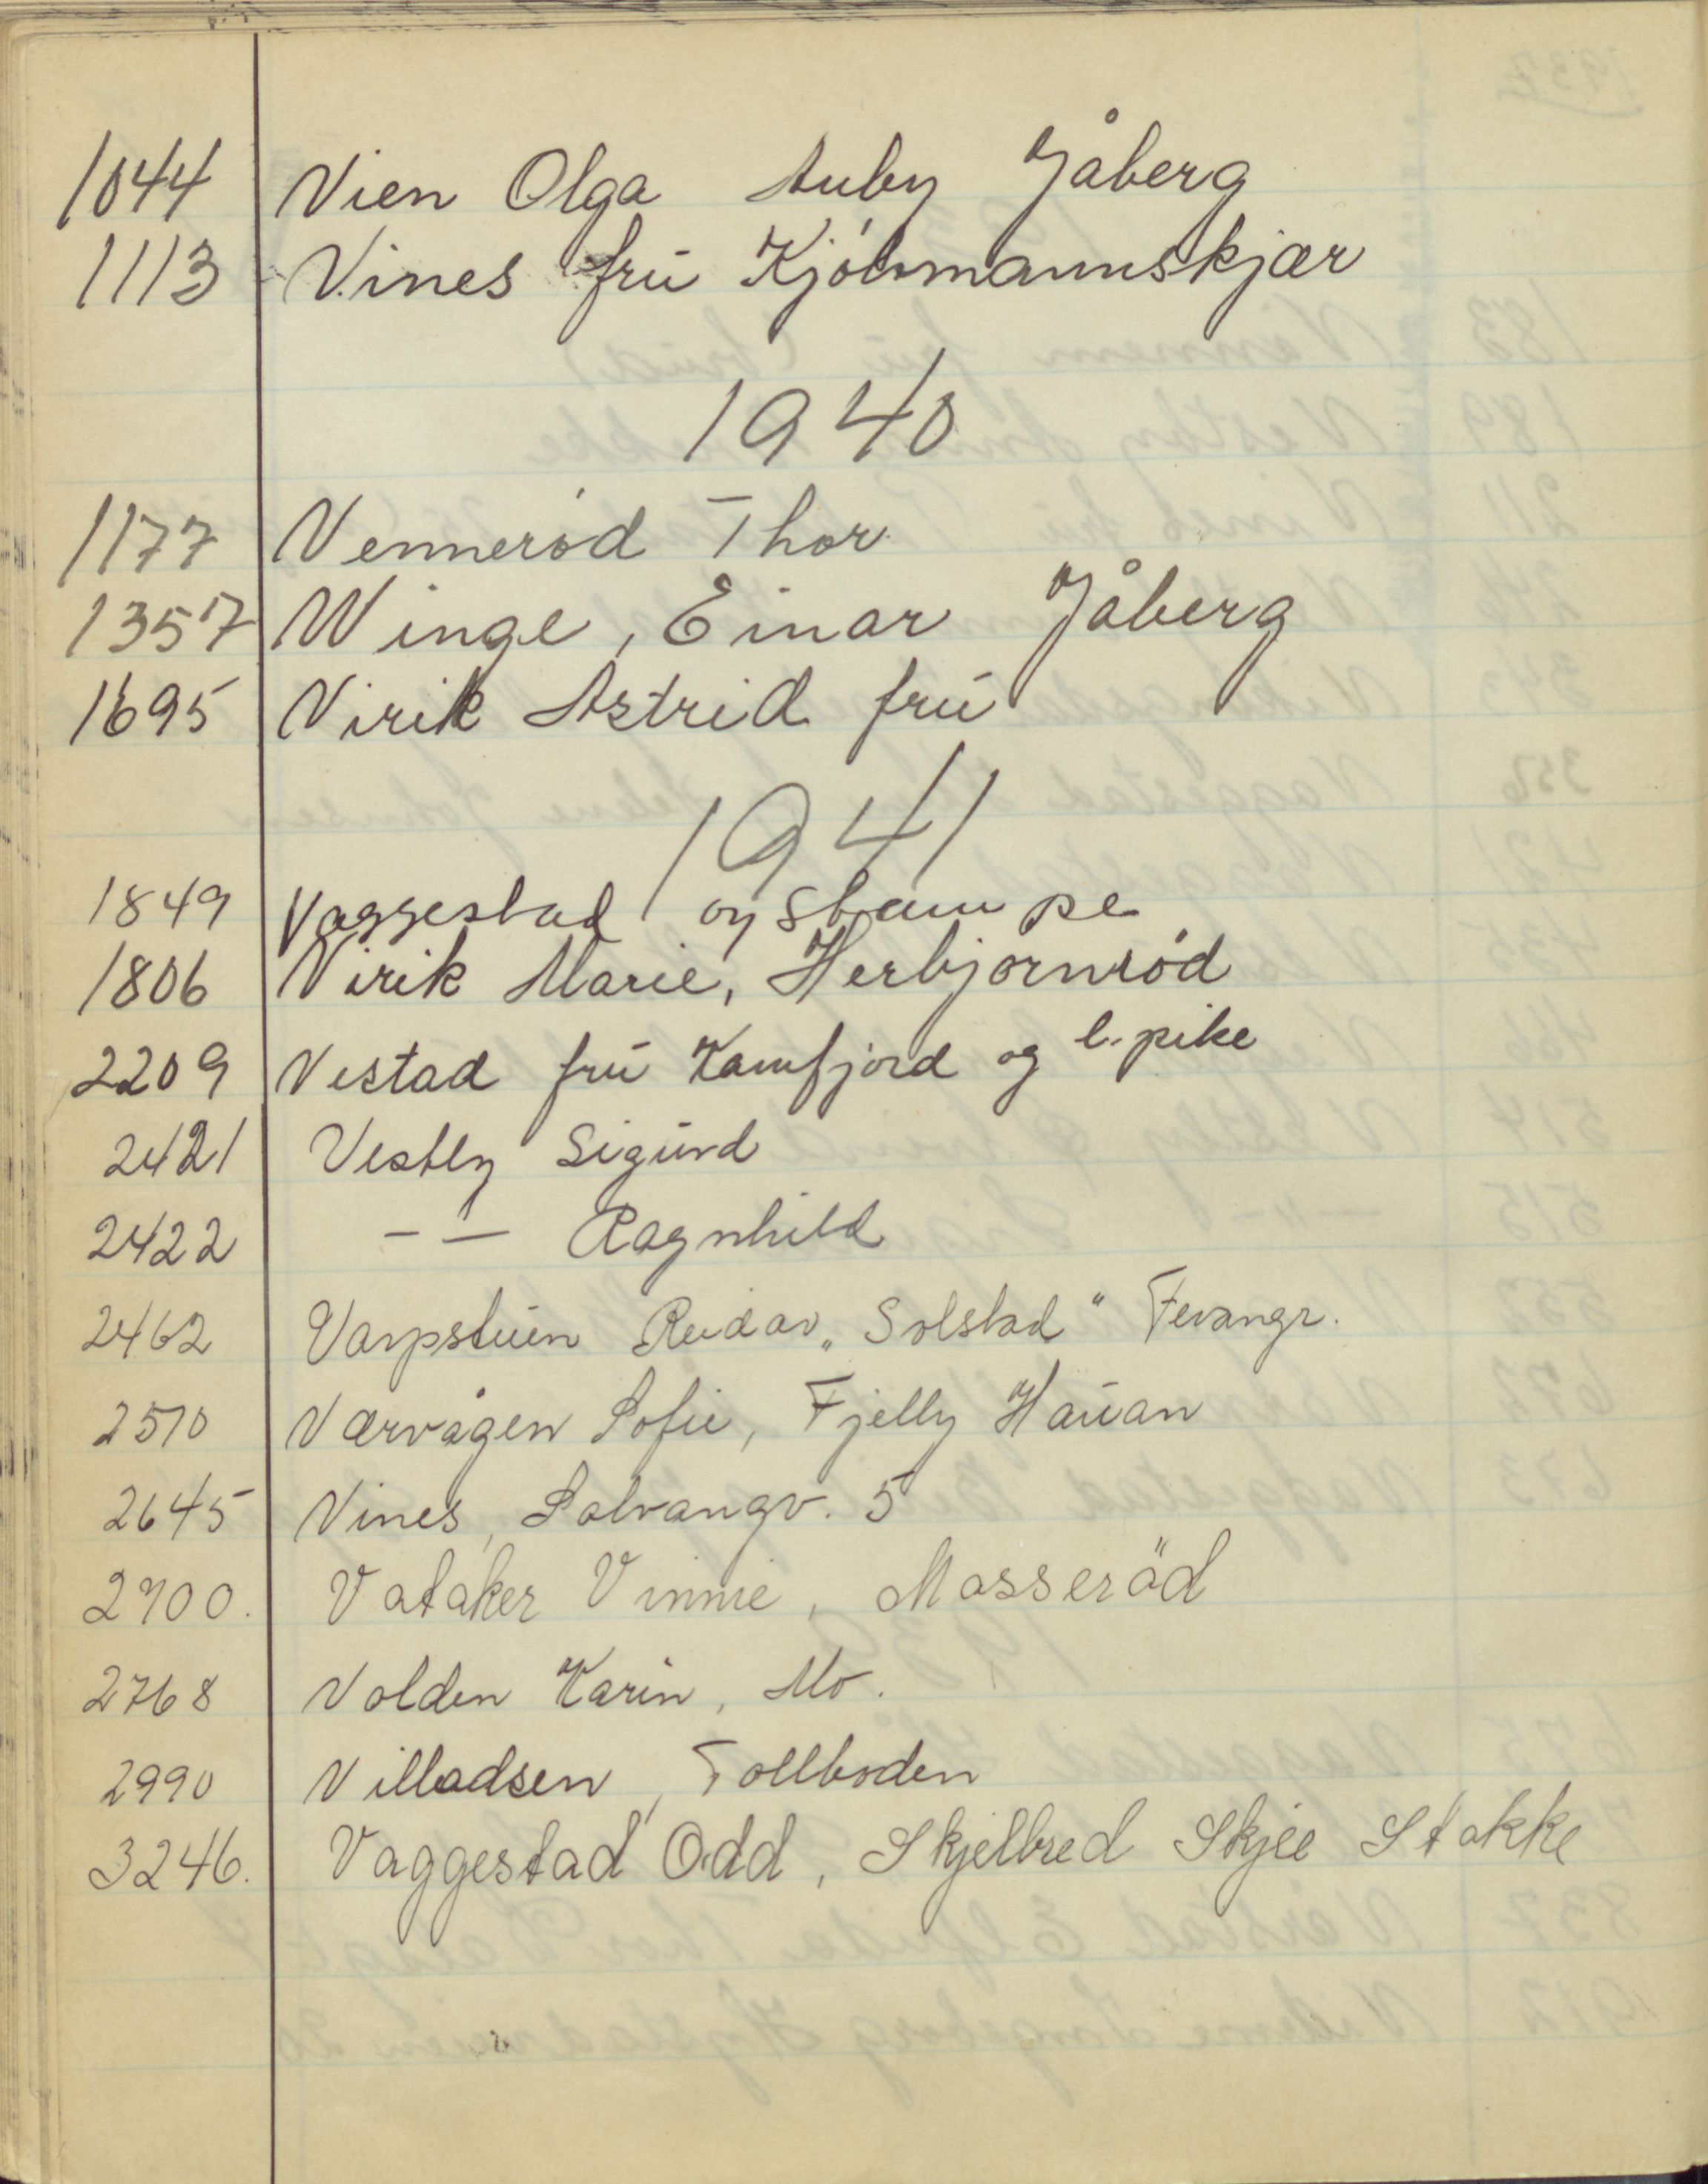 1044 Vien Olga Auby Jåberg
1113 Vines frú Kjøbmannskjær
1940
1177 Vennerød Thor
1357 Winge, Einar Jåberg
1695 Virik Astrid frú
1941
1849 Vaggestad og Stampe
1806 Virik Marie, Herbjørnrød
2209 Vestad frú Kamfjord og l. pike
2421 Vestly Sigúrd
2422 – – Ragnhild
2462 Varpstúen Reidar „Solstad" Fevangr.
2570 Værvågen Sofie, Fjelly Haúan
2645 Vines, Solvangv. 5
2700. Vataker Vinnie, Masseröd
2768 Volden Karin, Mo.
2990 Villadsen, Tollboden
3246. Vaggestad Odd, Skjelbred Skjee Stokke